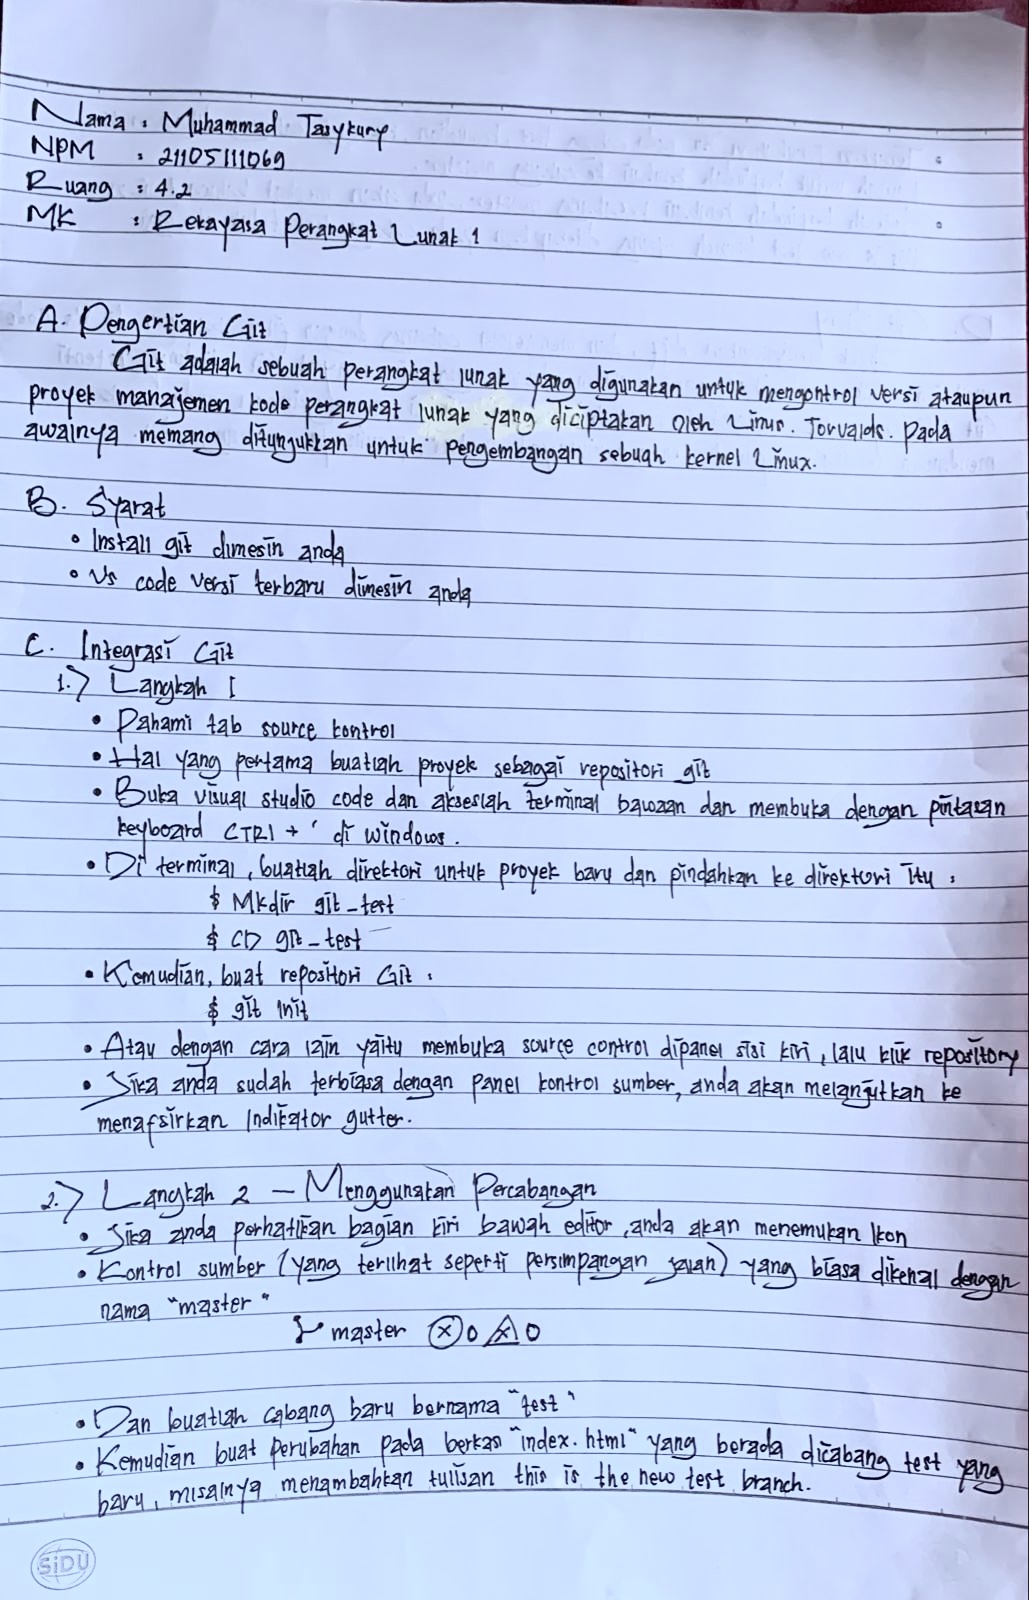 Nama : Muhammad Tasykury
NPM : 21105111069
Ruang : 4.2
MK : Rekayasa Perangkat Lunak 1
A. Pengertian Git
Git adalah sebuah perangkat lunak yang digunakan untuk mengontrol versi ataupun
proyek manajemen kode perangkat lunak yang diciptakan oleh Linus. Torvalds. Pada
awalnya memang ditunjukkan untuk pengembangan sebuah kernel Linux.
B. Syarat
• Install git dimesin anda
• Vs code versi terbaru dimesin anda
C. Integrasi Git
1.) Langkah I
• Pahami tab source kontrol
• Hal yang pertama buatlah proyek sebagai repositori git
• Buka visual studio code dan akseslah terminal bawaan dan membuka dengan pintasan
keyboard CTRl + ' di windows.
• Di terminal, buatlah direktori untuk proyek baru dan pindahkan ke direktori itu :
$ Mkdir git_test
$ CD git_test
• Kemudian, buat repositori Git :
$ git init
• Atau dengan cara lain yaitu membuka source control dipanel sisi kiri, lalu klik repository
• Jika anda sudah terbiasa dengan panel kontrol sumber, anda akan melanjutkan ke
menafsirkan Indikator gutter.
2.) Langkah 2 – Menggunakan Percabangan
• Jika anda perhatikan bagian kiri bawah editor, anda akan menemukan Ikon
• Kontrol sumber (yang terlihat seperti persimpangan jalan) yang biasa dikenal dengan
nama "master"
master ⓧ 0 ⚠ 0
• Dan buatlah cabang baru bernama "test"
• Kemudian buat perubahan pada berkas "index.html" yang berada dicabang test yang
baru, misalnya menambahkan tulisan this is the new test branch.
SiDU